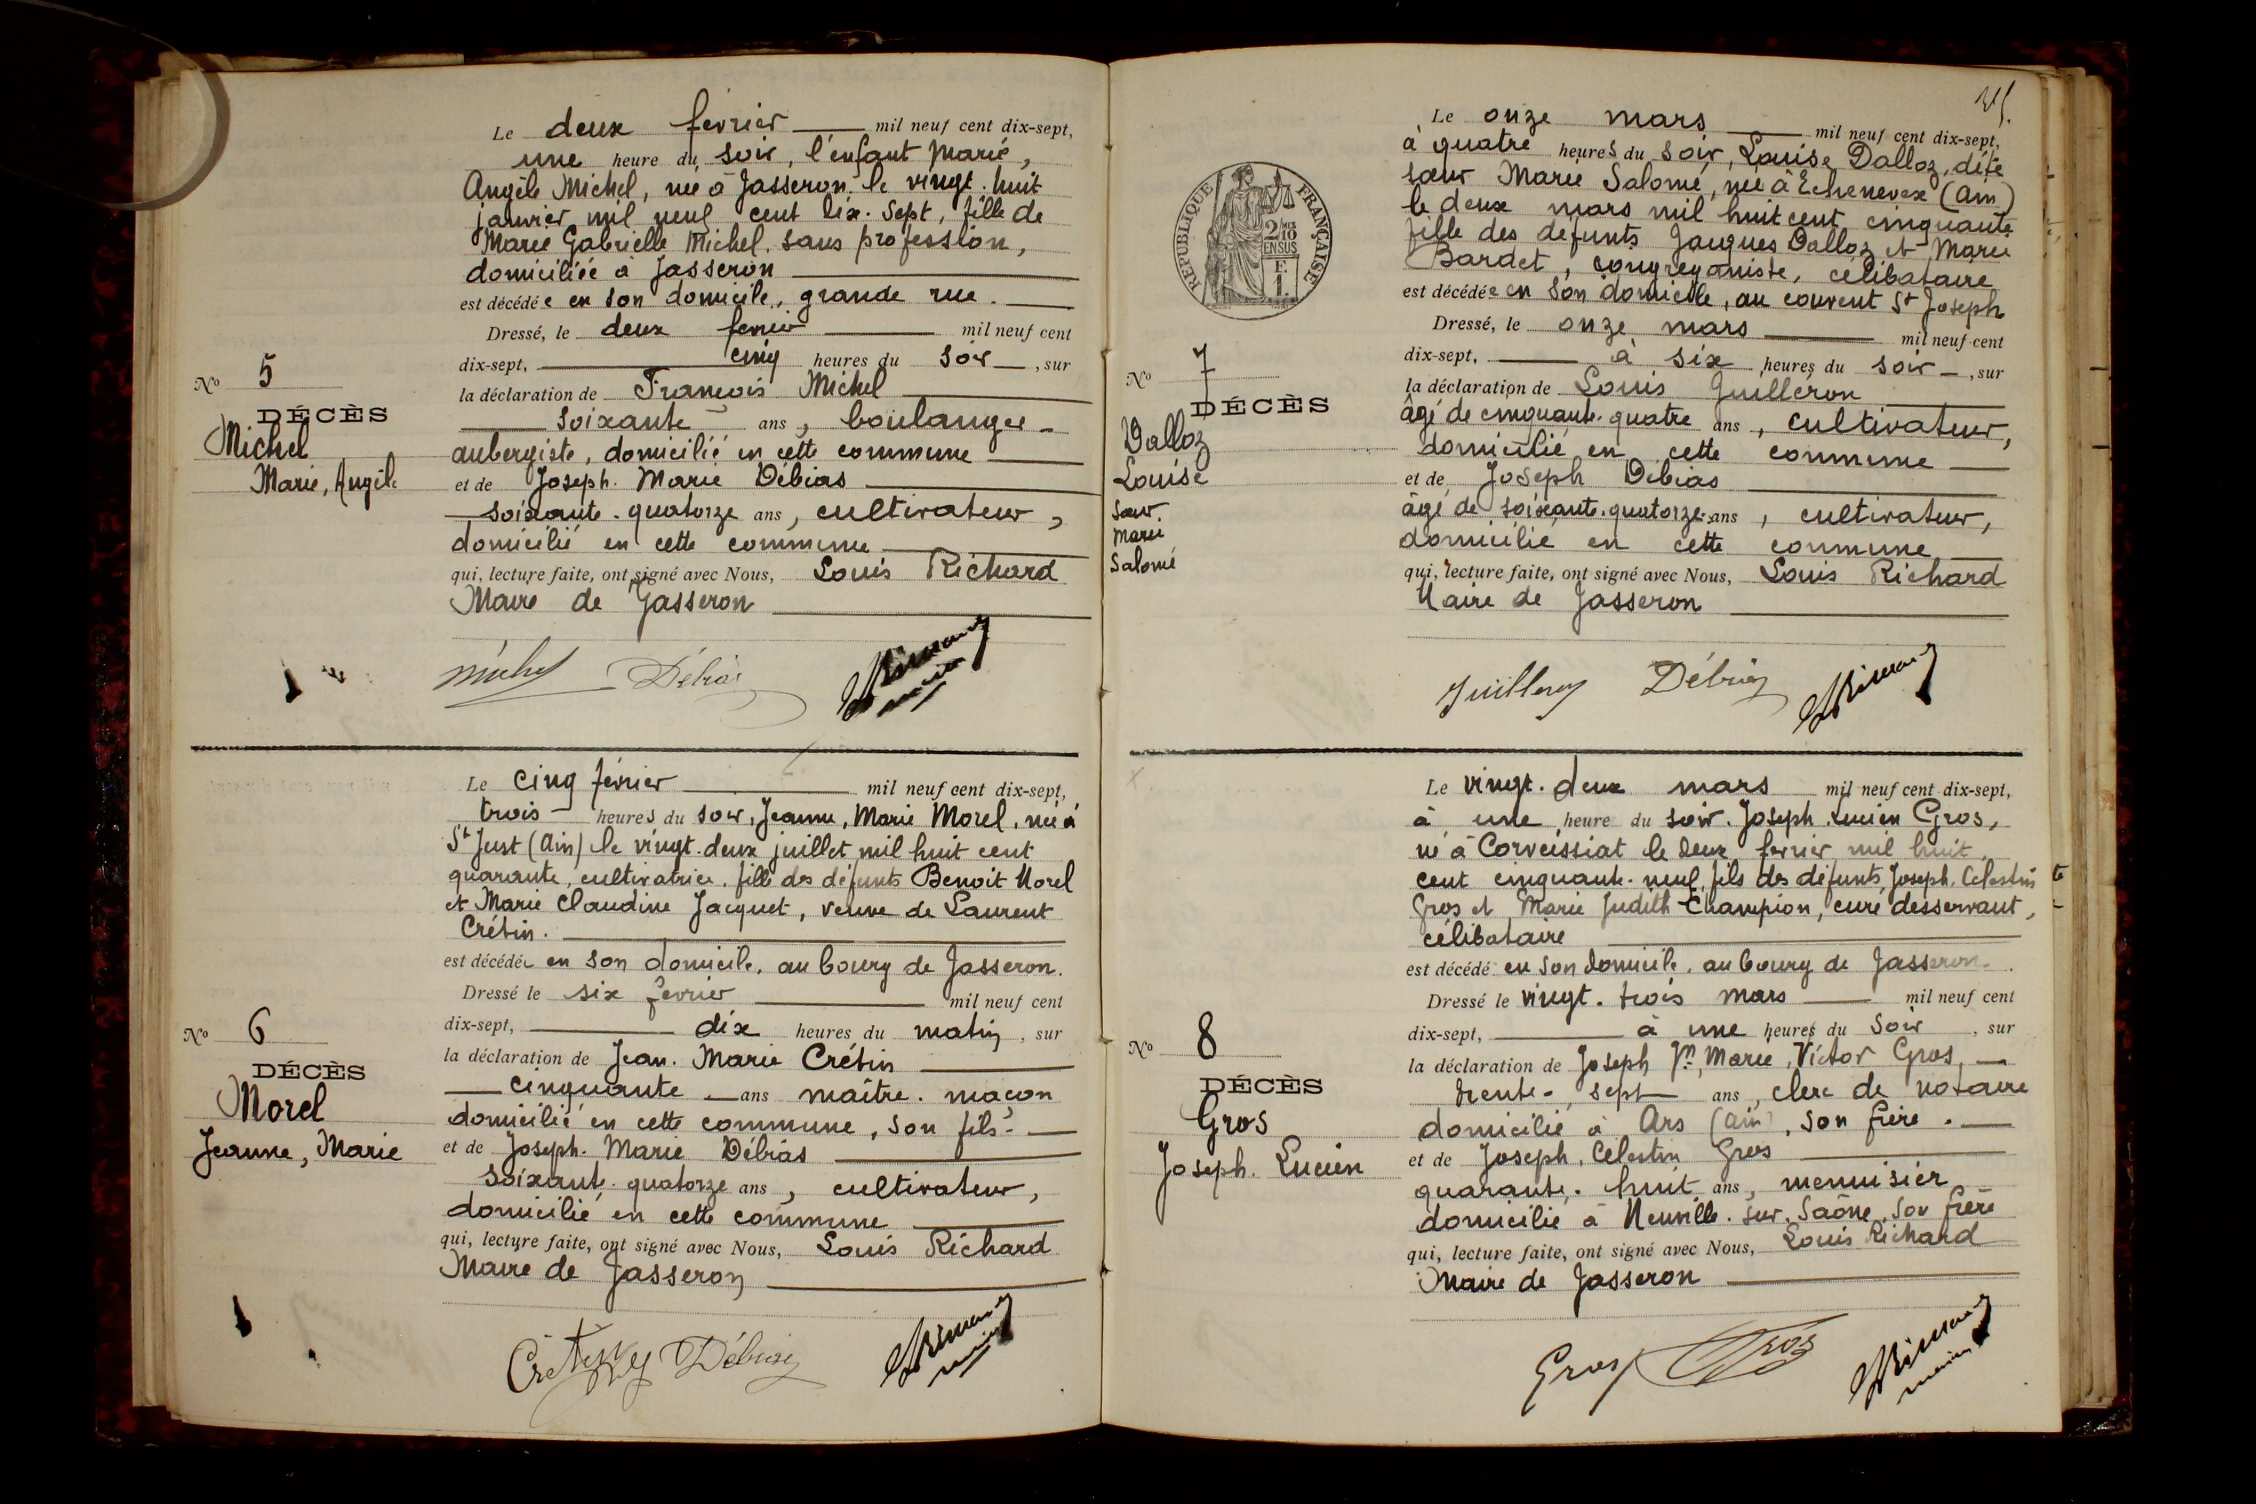 Le deux février mil neuf cent dix-sept,
une heure du soir, l'enfant Marie,
Angèle Michel, née à Jasseron le vingt. huit
janvier mil neuf cent dix. sept, fille de
Marie Gabrielle Michel, sans profession,
domiciliée à Jasseron
est décédée en son domicile, grande rue.
Dressé, le deux février mil neuf cent
dix-sept, cinq heures du soir, sur
la déclaration de François Michel
soixante ans, boulanger-
aubergiste, domicilié en cette commune
et de Joseph. Marie Débias
soixante. quatorze ans, cultivateur,
domicilié en cette commune
qui, lecture faite, ont signé avec Nous, Louis Richard
Maire de Jasseron
Michel Débias
No 5
DÉCÈS
Michel
Marie, Angèle
Le cinq février mil neuf cent dix-sept,
trois heures du soir, Jeanne, Marie Morel, née à
St Just (Ain) le vingt. deux juillet mil huit cent
quarante, cultivatrice, fille des défunts Benoit Morel
et Marie Claudine Jacquet, veuve de Laurent
Crétin.
est décédée en son domicile, au bourg de Jasseron.
Dressé le six février mil neuf cent
dix-sept, dix heures du matin, sur
la déclaration de Jean. Marie Crétin
cinquante ans maître. maçon
domicilié en cette commune, son fils
et de Joseph. Marie Débias
soixante. quatorze ans, cultivateur,
domicilié en cette commune
qui, lecture faite, ont signé avec Nous, Louis Richard
Maire de Jasseron
No 6
DÉCÈS
Morel
Jeanne, Marie
Crétin Débias
Le onze mars mil neuf cent dix-sept,
à quatre heures du soir, Louise Dalloz, dite
sœur Marie Salomé, née à Echenevex (Ain)
le deux mars mil huit cent cinquante
fille des défunts Jacques Dalloz et Marie
Bardet, congréganiste, célibataire
est décédée en son domicile, au couvent St Joseph
Dressé, le onze mars mil neuf cent
dix-sept, à six heures du soir, sur
la déclaration de Louis Guilleron
âgé de cinquante. quatre ans, cultivateur,
domicilié en cette commune
et de Joseph Debias
âgé de soixante. quatorze ans, cultivateur,
domicilié en cette commune
qui, lecture faite, ont signé avec Nous, Louis Richard
Maire de Jasseron
RÉPUBLIQUE FRANÇAISE
2/10
EN SUS
No 7
DÉCÈS
Dalloz
Louise
Sœur
Marie
Salomé
Guilleron Débias
Le vingt. deux mars mil neuf cent dix-sept,
à une heure du soir. Joseph. Lucien Gros,
né à Corveissiat le deux février mil huit
cent cinquante. neuf, fils des défunts Joseph. Célestin
Gros et Marie Judith Champion, curé desservant,
célibataire
est décédé en son domicile, au bourg de Jasseron.
Dressé le vingt. trois mars mil neuf cent
dix-sept, à une heures du soir, sur
la déclaration de Joseph Jn Marie, Victor Gros,
trente-sept ans, clerc de notaire
domicilié à Ars (Ain), son frère.
et de Joseph, Célestin Gros
quarante. huit ans, menuisier
domicilié à Neuville. sur. Saône, son frère
qui, lecture faite, ont signé avec Nous, Louis Richard
Maire de Jasseron
No 8
DÉCÈS
Gros
Joseph. Lucien
Gros Gros